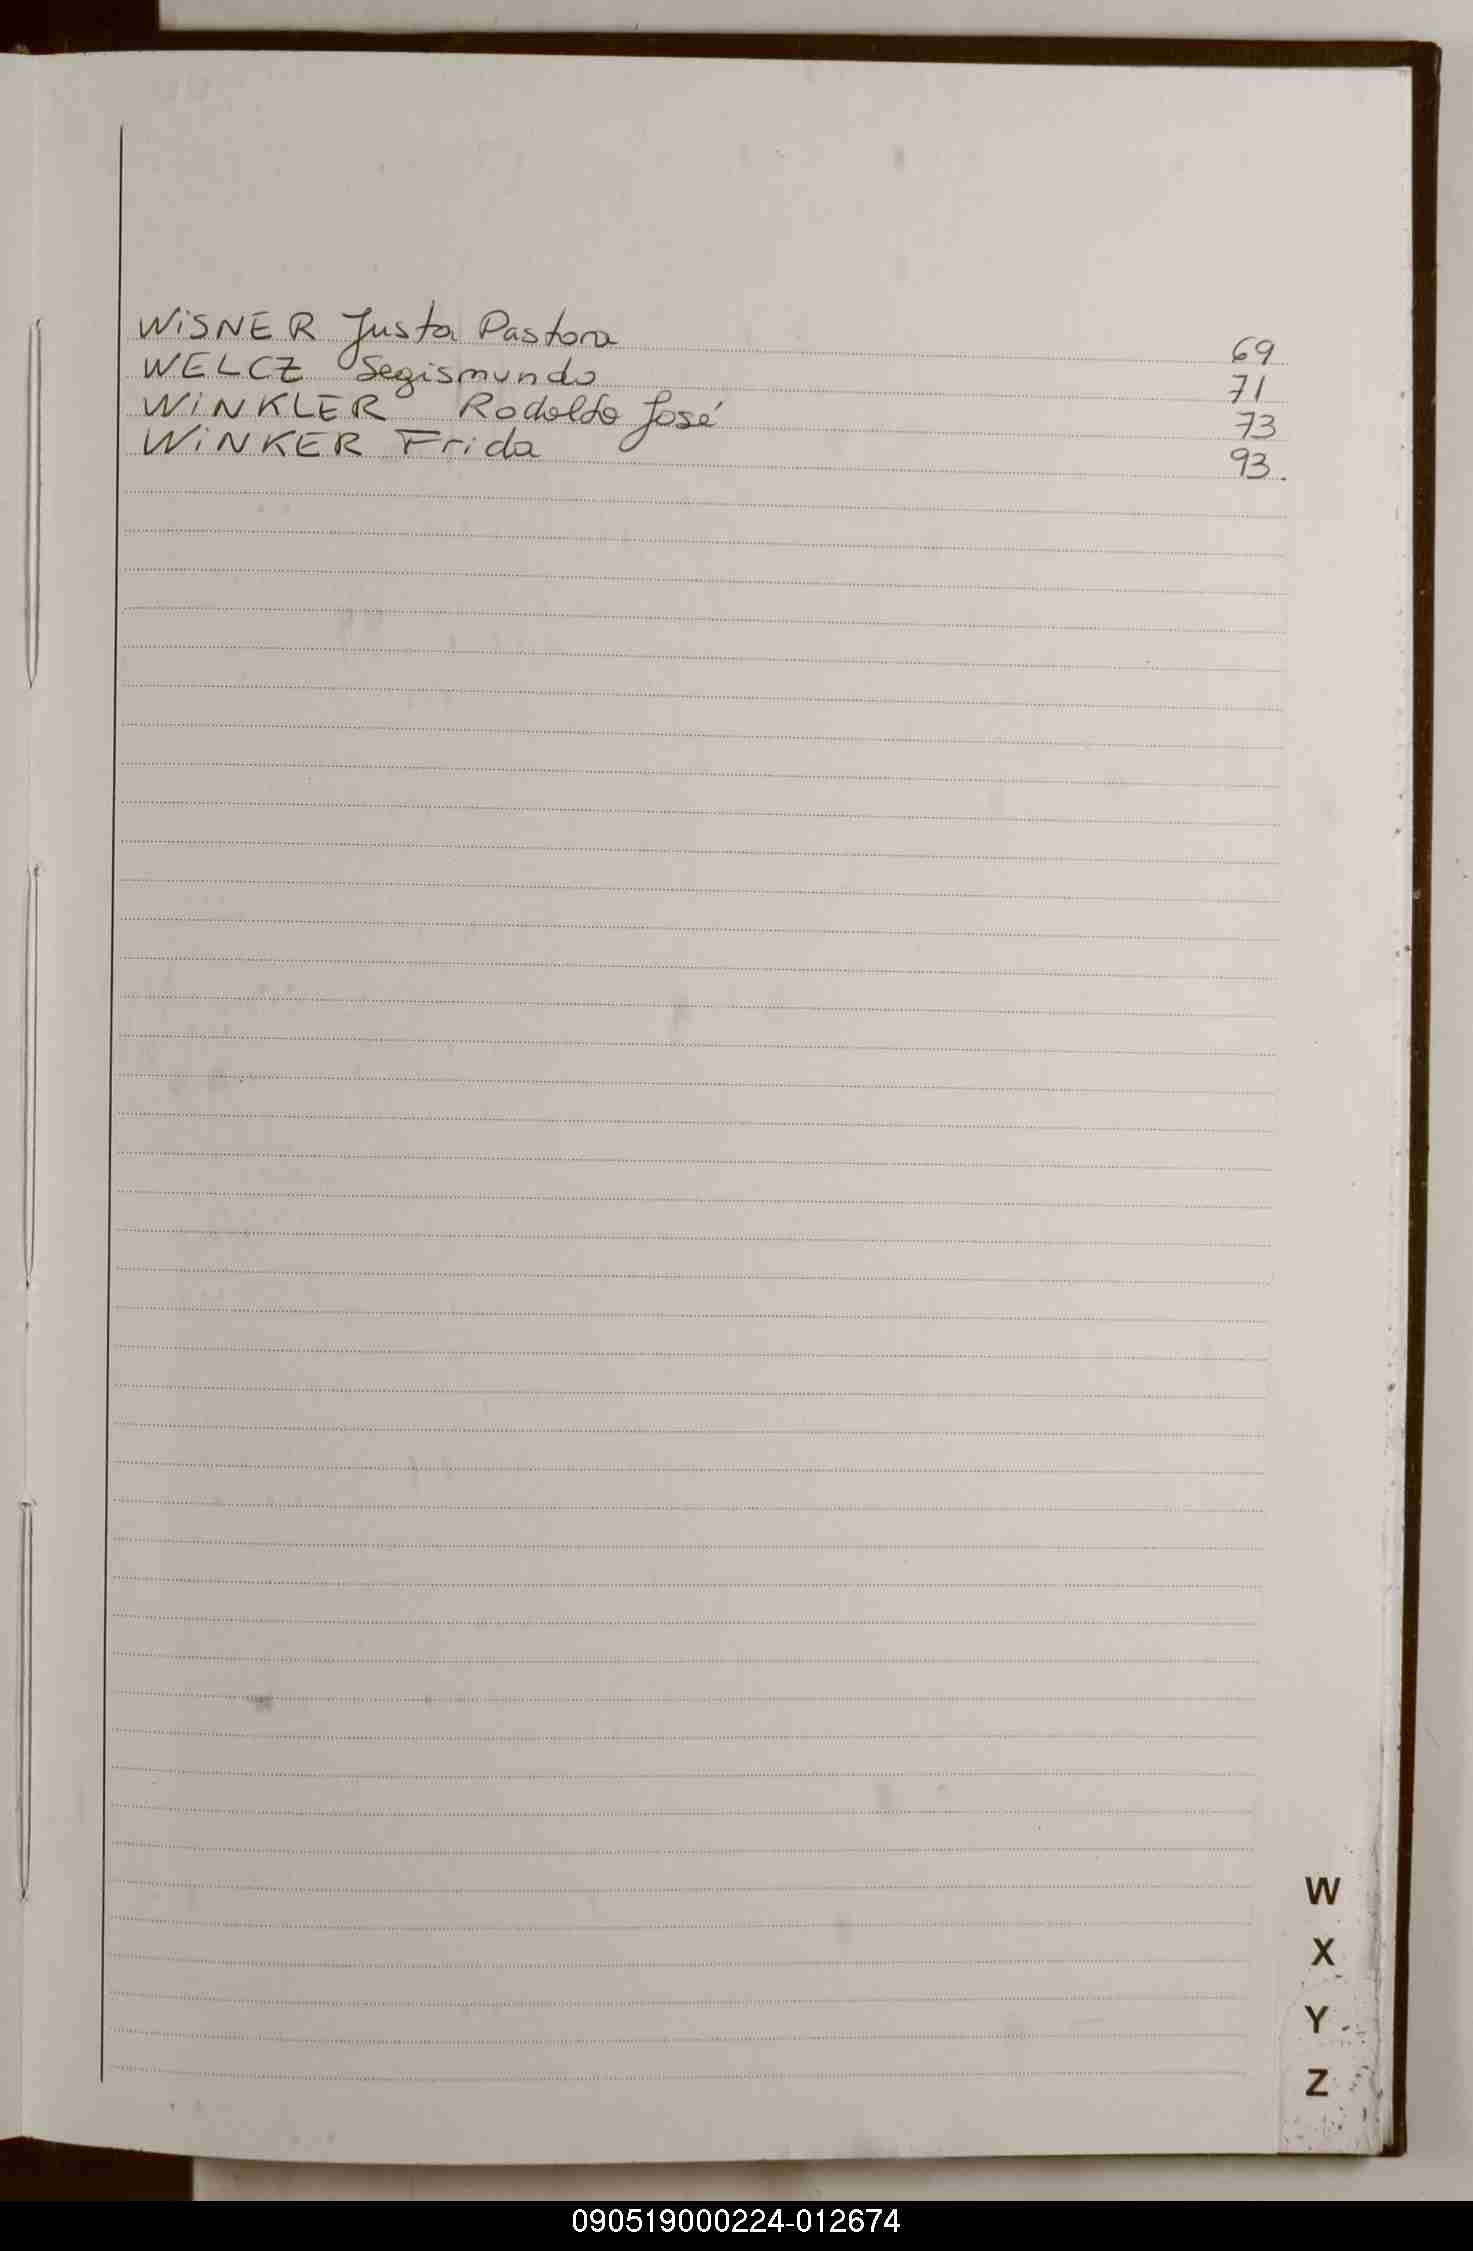 WiSNER Justa Pastora 69
WELCZ Segismundo 71
WiNKLER Rodolfo José 73
WiNKER Frida 93.
W
X
Y
Z
090519000224-012674